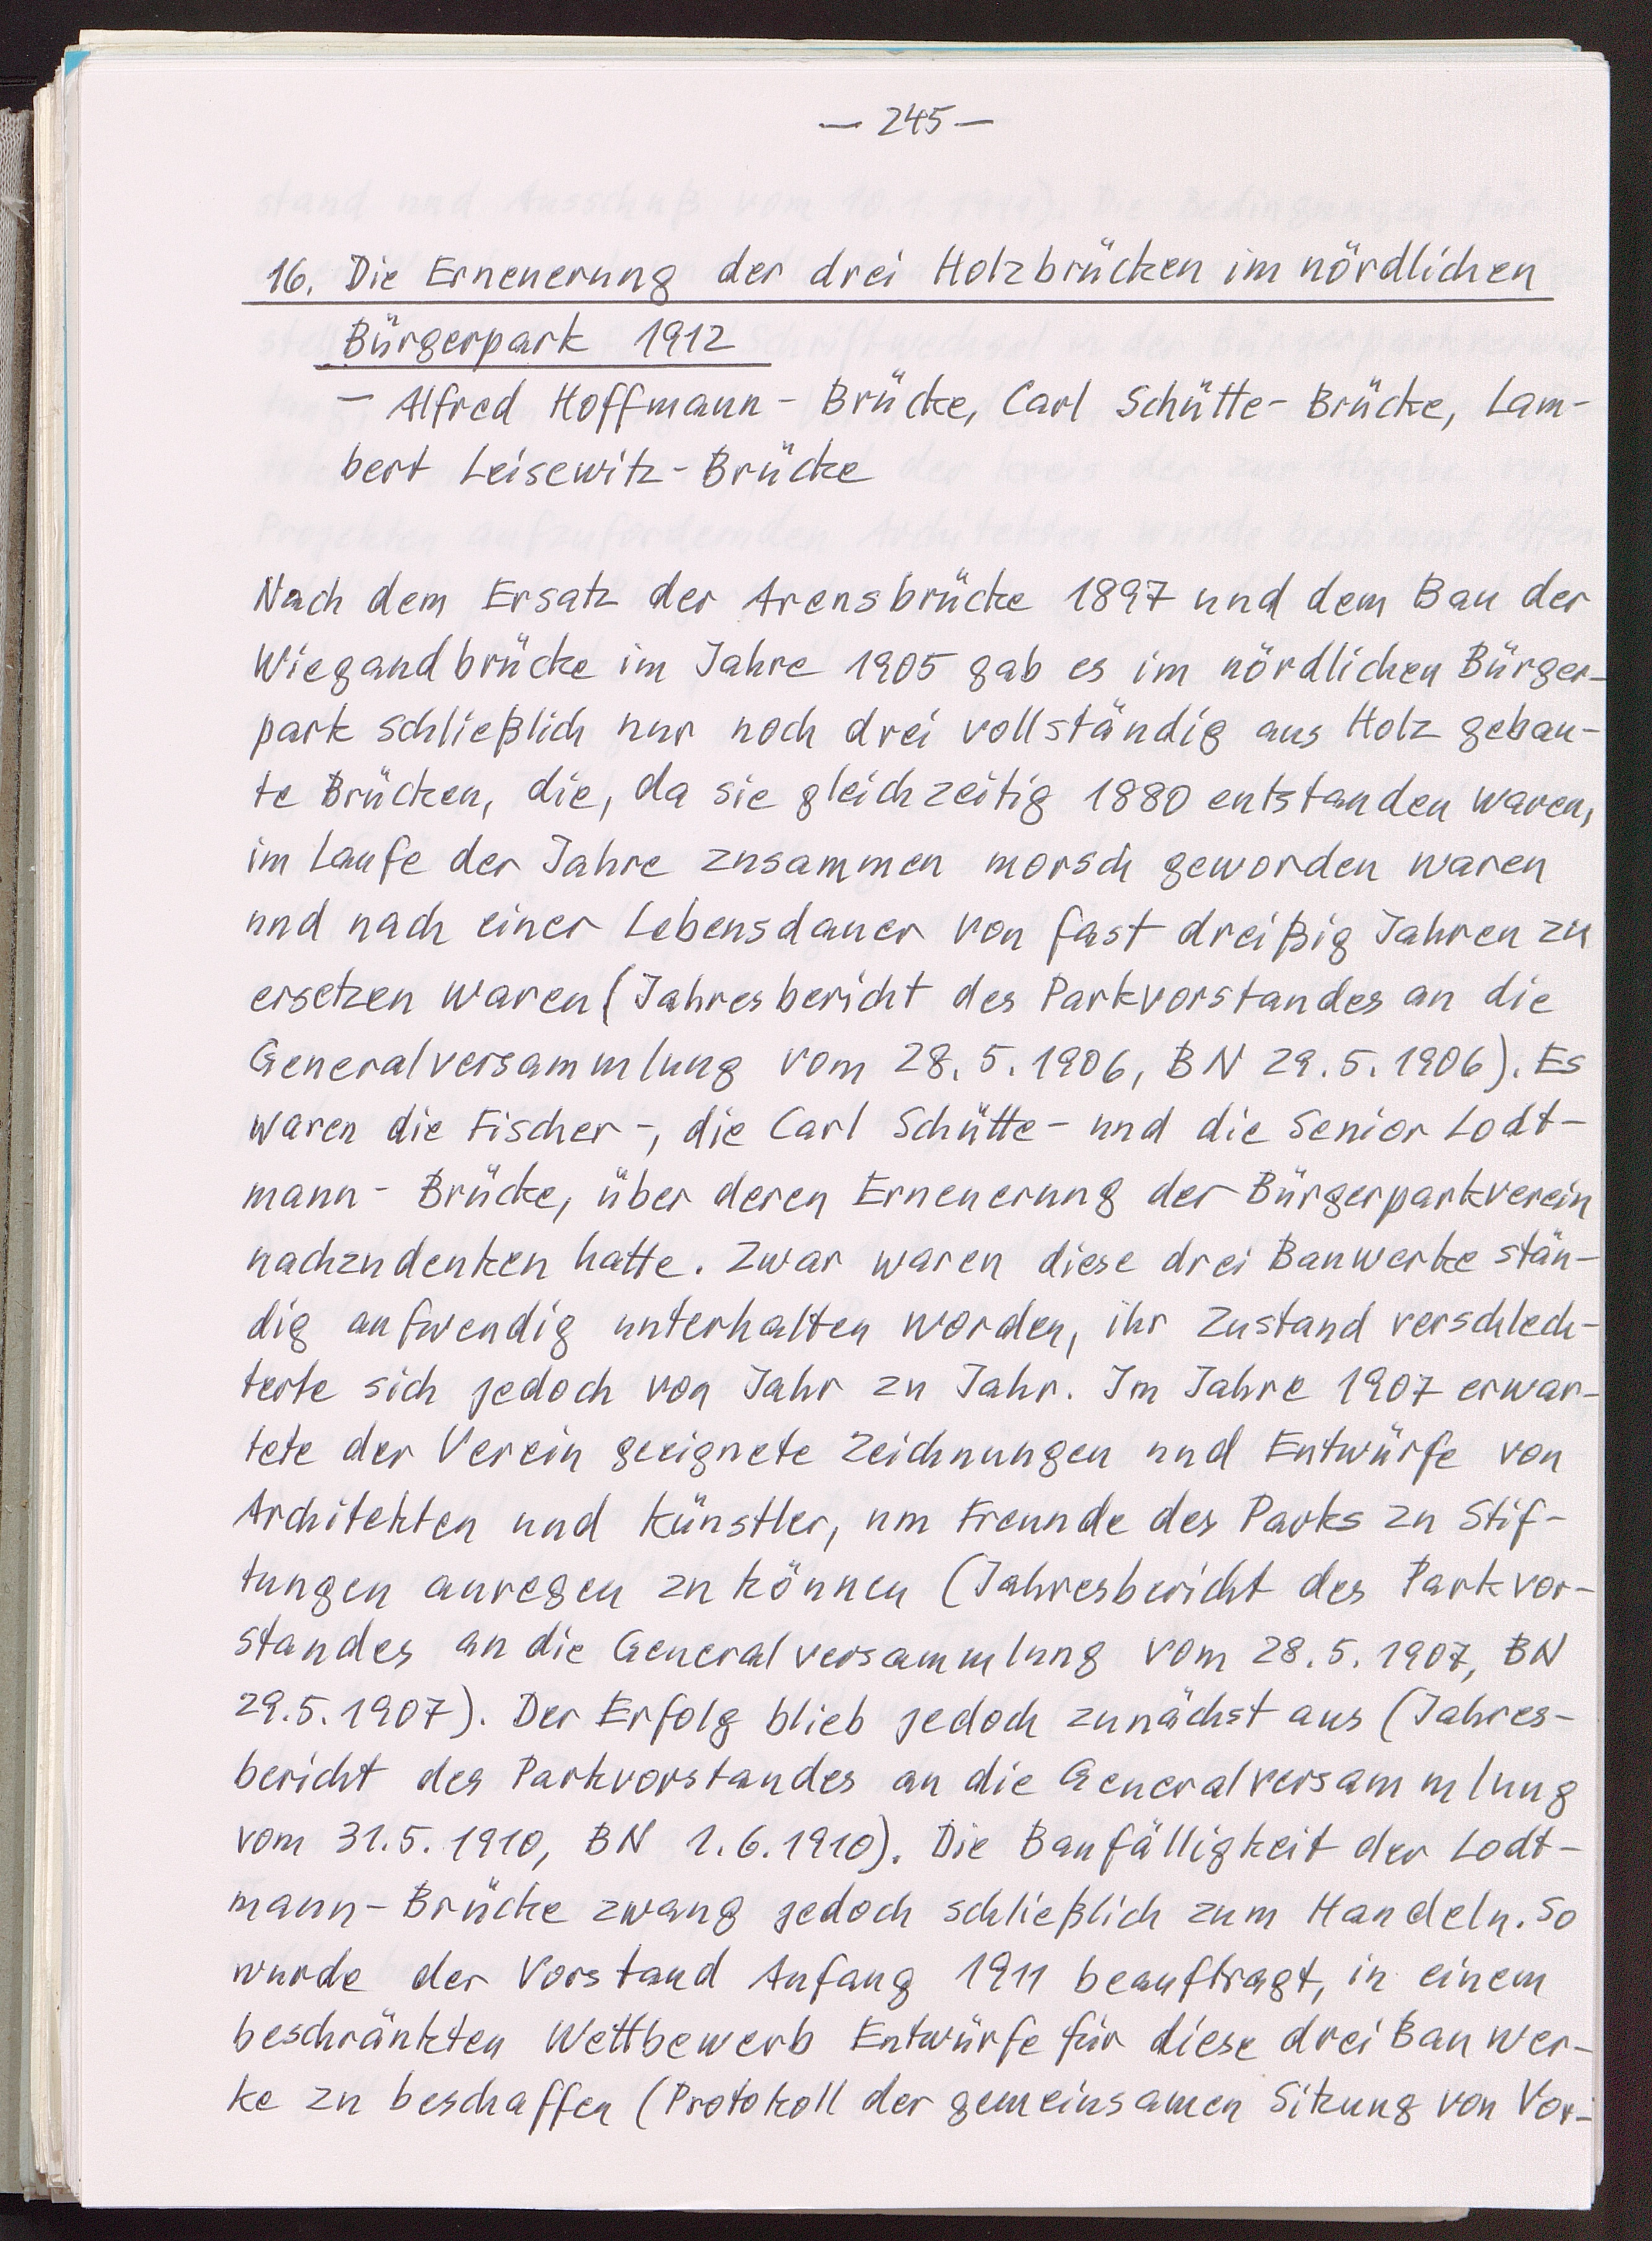 — 245 —
16. Die Erneuerung der drei Holzbrücken im nördlichen
Bürgerpark 1912
— Alfred Hoffmann-Brücke, Carl Schütte-Brücke, Lam-
bert Leisewitz-Brücke
Nach dem Ersatz der Arensbrücke 1897 und dem Bau der
Wiegandbrücke im Jahre 1905 gab es im nördlichen Bürger-
park schließlich nur noch drei vollständig aus Holz gebau-
te Brücken, die, da sie gleichzeitig 1880 entstanden waren,
im Laufe der Jahre zusammen morsch geworden waren
und nach einer Lebensdauer von fast dreißig Jahren zu
ersetzen waren (Jahresbericht des Parkvorstandes an die
Generalversammlung vom 28.5.1906, BN 29.5.1906). Es
waren die Fischer-, die Carl Schütte- und die Senior Lodt-
mann-Brücke, über deren Erneuerung der Bürgerparkverein
nachzudenken hatte. Zwar waren diese drei Bauwerke stän-
dig aufwendig unterhalten worden, ihr Zustand verschlech-
terte sich jedoch von Jahr zu Jahr. Im Jahre 1907 erwar-
tete der Verein geeignete Zeichnungen und Entwürfe von
Architekten und Künstler, um Freunde des Parks zu Stif-
tungen anregen zu können (Jahresbericht des Parkvor-
standes an die Generalversammlung vom 28.5.1907, BN
29.5.1907). Der Erfolg blieb jedoch zunächst aus (Jahres-
bericht des Parkvorstandes an die Generalversammlung
vom 31.5.1910, BN 1.6.1910). Die Baufälligkeit der Lodt-
mann-Brücke zwang jedoch schließlich zum Handeln. So
wurde der Vorstand Anfang 1911 beauftragt, in einem
beschränkten Wettbewerb Entwürfe für diese drei Bauwer-
ke zu beschaffen (Protokoll der gemeinsamen Sitzung von Vor-